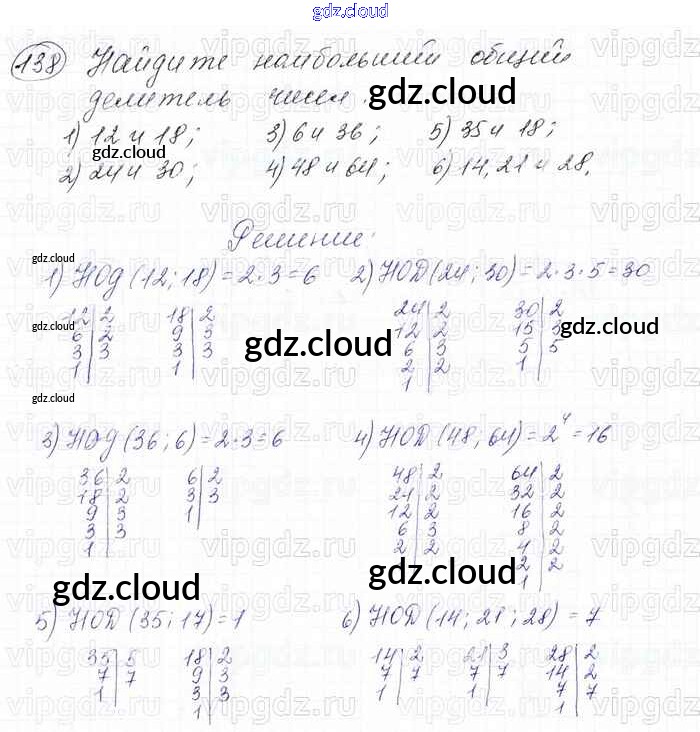 gdz.cloud
138 Найдите наибольший общий
делитель чисел.
gdz.cloud
1) 12 и 18; 3) 6 и 36; 5) 35 и 18;
gdz.cloud
2) 24 и 30; 4) 48 и 64; 6) 14, 21 и 28.
Решение:
gdz.cloud
1) НОД (12; 18) = 2·3 = 6 2) НОД (24; 30) = 2·3·5 = 30
12|2 18|2 24|2 30|2
gdz.cloud gdz.cloud
6|2 9|3 12|2 15|3
gdz.cloud
3|3 3|3 6|3 5|5
1| 1| 2|2 1|
1|
gdz.cloud
3) НОД (36; 6) = 2·3 = 6 4) НОД (48; 64) = 2⁴ = 16
36|2 6|2 48|2 64|2
18|2 3|3 24|2 32|2
9|3 1| 12|2 16|2
3|3 6|3 8|2
1| 2|2 4|2
2|2
1|
gdz.cloud gdz.cloud
5) НОД (35; 17) = 1 6) НОД (14; 21; 28) = 7
35|5 18|2 14|2 21|3 28|2
7|7 9|3 7|7 7|7 14|2
1| 3|3 1| 1| 7|7
1| 1|